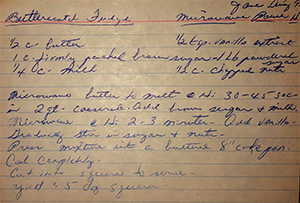 Jane Aug 9
Butterscotch Fudge Microwave
1/2 c - butter 1/2 tsp. vanilla extract
1 c. firmly packed brown sugar 1 lb powdered sugar
1/4 c - milk 1/2 c - chopped nuts
Microwave butter to melt @ Hi 30-45 sec
in 2 qt - casserole. Add brown sugar & milk
Microwave @ Hi 2-3 minutes - Add vanilla.
Gradually stir in sugar & nuts -
Press mixture into a buttered 8" cake pan.
Cool Completely -
Cut into squares to serve -
yield squares